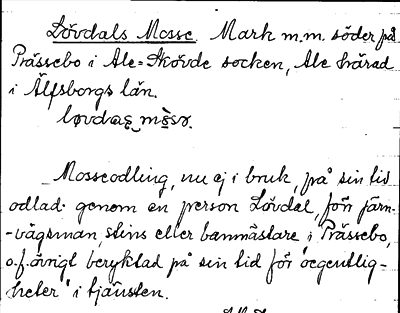 Lövdals Mosse. Mark m.m. söder på
Prässebo i Ale-Skövde socken, Ale härad
i Älfsborgs län.
Mosseodling, nu ej i bruk, på sin tid
odlad genom en person Lövdal, förr järn-
-vägsman, stins eller banmästare, i Prässebo,
o.f. övrigt beryktad på sin tid för "oegentlig-
heter" i tjänsten.